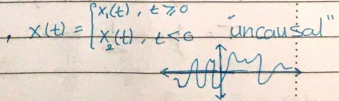 , x(t) = { x₁(t), t ≥ 0
x₂(t), t < 0 "uncausal"